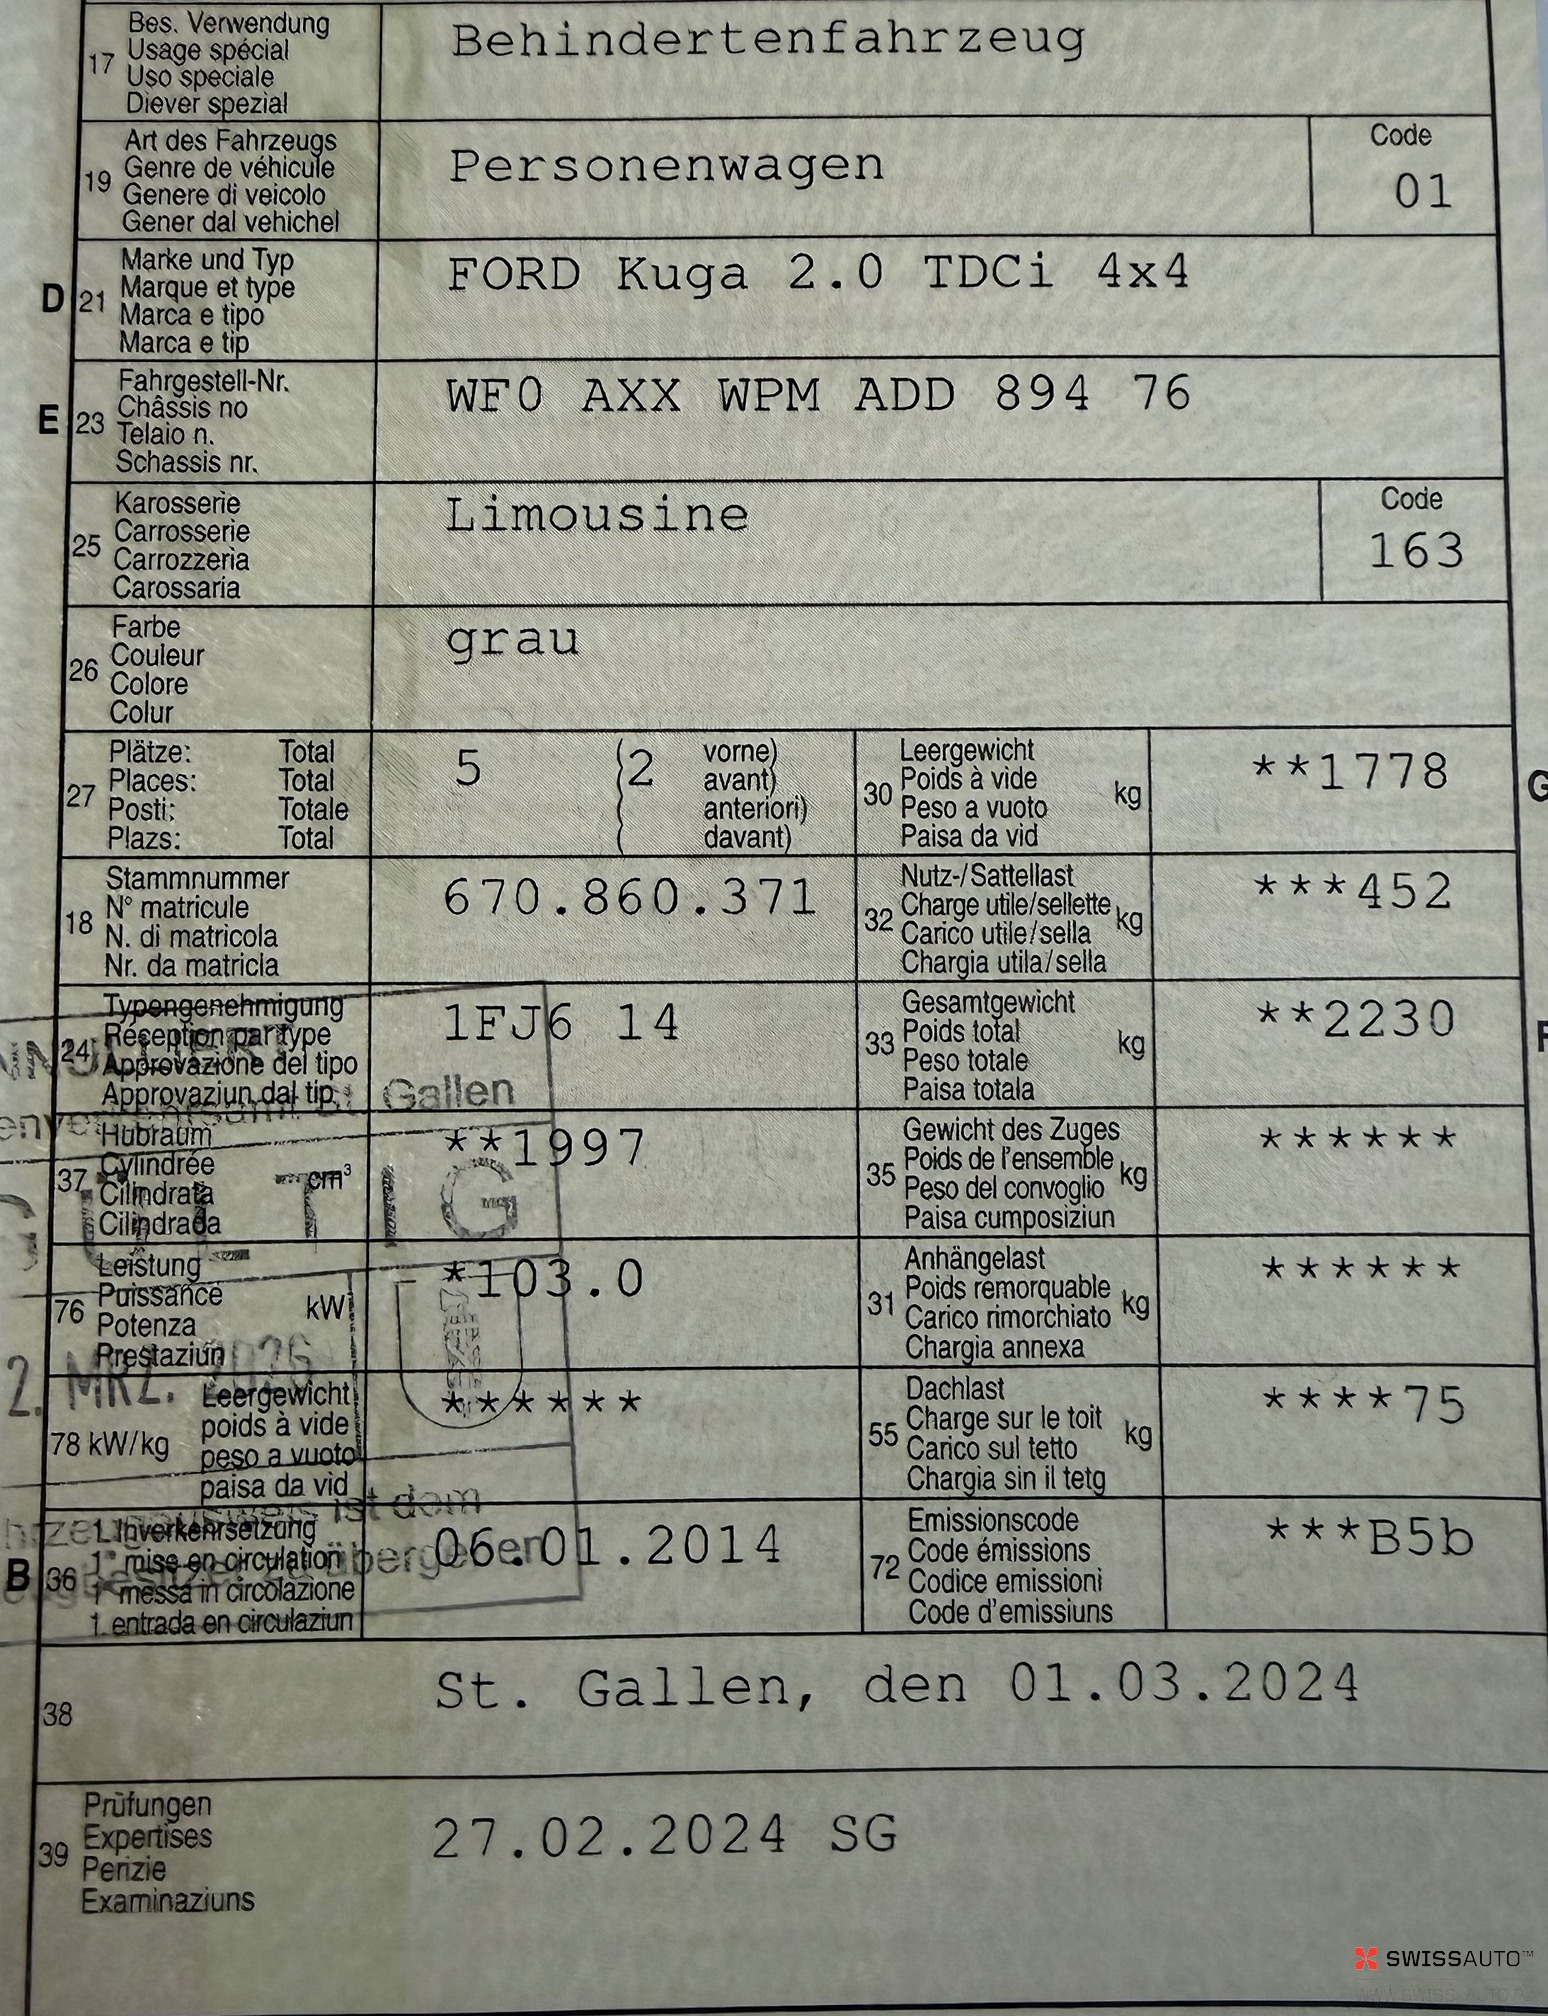 17 Bes. Verwendung
Usage spécial
Uso speciale
Diever spezial
Behindertenfahrzeug
19 Art des Fahrzeugs
Genre de véhicule
Genere di veicolo
Gener dal vehichel
Personenwagen
Code
01
D 21 Marke und Typ
Marque et type
Marca e tipo
Marca e tip
FORD Kuga 2.0 TDCi 4x4
E 23 Fahrgestell-Nr.
Châssis no
Telaio n.
Schassis nr.
WF0 AXX WPM ADD 894 76
25 Karosserie
Carrosserie
Carrozzeria
Carossaria
Limousine
Code
163
26 Farbe
Couleur
Colore
Colur
grau
27 Plätze: Total
Places: Total
Posti: Totale
Plazs: Total
5 (2 vorne)
( avant)
( anteriori)
( davant)
30 Leergewicht
Poids à vide
Peso a vuoto
Paisa da vid
kg
**1778
G
18 Stammnummer
N° matricule
N. di matricola
Nr. da matricla
670.860.371
32 Nutz-/Sattellast
Charge utile/sellette
Carico utile/sella
Chargia utila/sella
kg
***452
24 Typengenehmigung
Réception par type
Approvazione del tipo
Approvaziun dal tip
1FJ6 14
33 Gesamtgewicht
Poids total
Peso totale
Paisa totala
kg
**2230
F
St. Gallen
37 Hubraum
Cylindrée
Cilindrata
Cilindrada
cm³
**1997
35 Gewicht des Zuges
Poids de l'ensemble
Peso del convoglio
Paisa cumposiziun
kg
******
76 Leistung
Puissance
Potenza
Prestaziun
kW
*103.0
31 Anhängelast
Poids remorquable
Carico rimorchiato
Chargia annexa
kg
******
2. MRZ. 2026
78 kW/kg Leergewicht
poids à vide
peso a vuoto
paisa da vid
******
55 Dachlast
Charge sur le toit
Carico sul tetto
Chargia sin il tetg
kg
****75
ist dem
zu übergeben
B 36 1. Inverkehrsetzung
1re mise en circulation
1a messa in circolazione
1. entrada en circulaziun
06.01.2014
72 Emissionscode
Code émissions
Codice emissioni
Code d'emissiuns
***B5b
38 St. Gallen, den 01.03.2024
39 Prüfungen
Expertises
Perizie
Examinaziuns
27.02.2024 SG
SWISSAUTO™